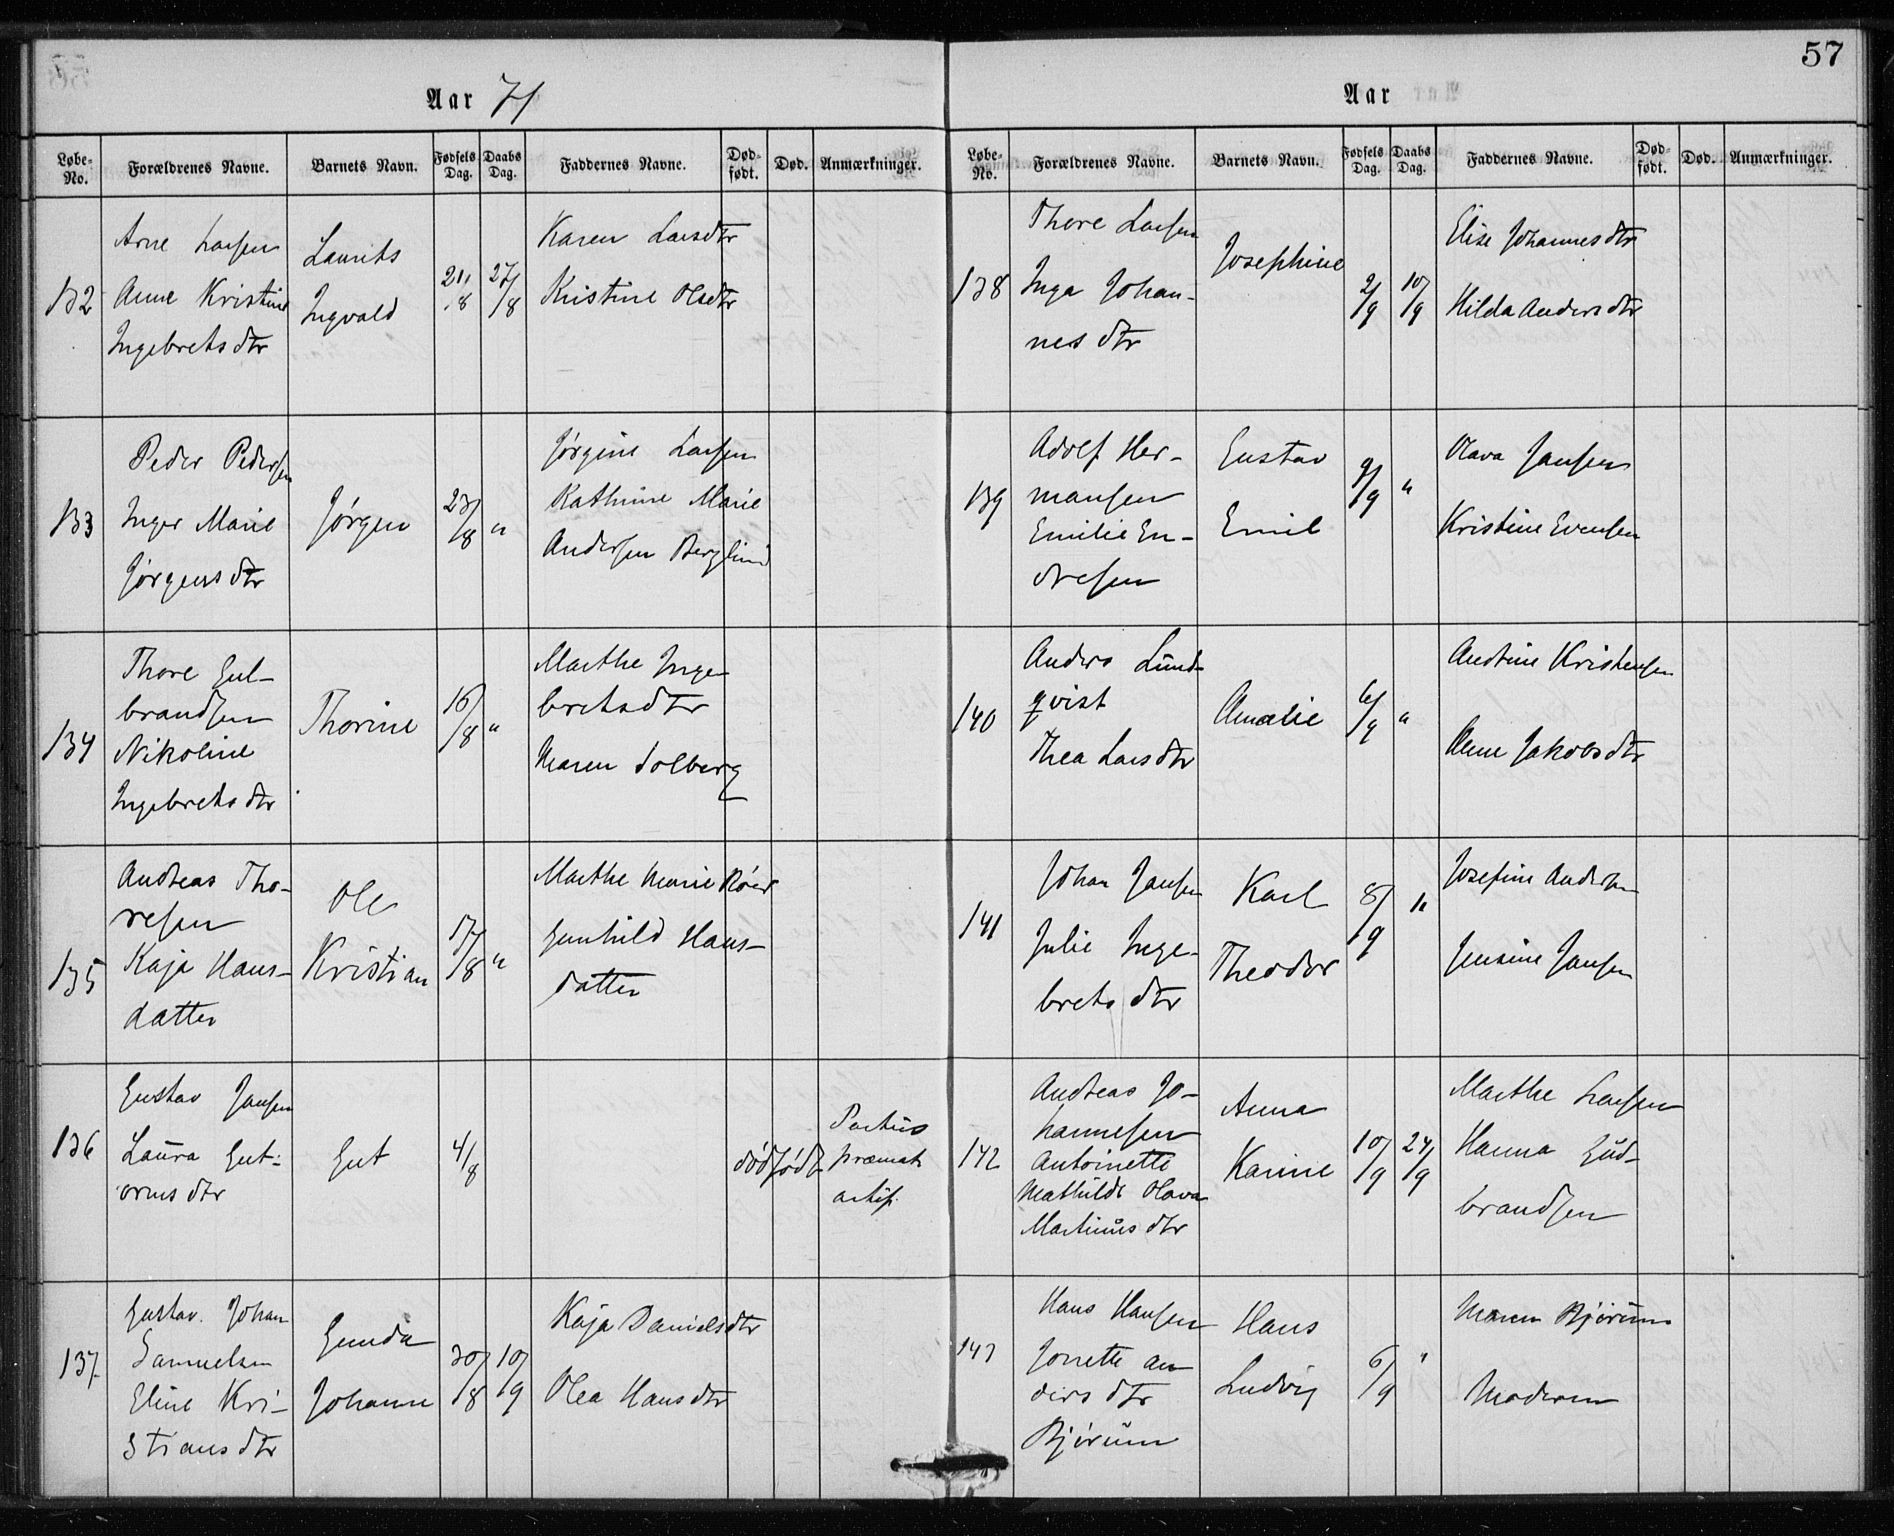 57
Aar 71
Løbe-No. Forældrenes Navne. Barnets Navn. Fødsels Dag. Daabs Dag. Faddernes Navne. Død-født. Død. Anmærkninger.
132
Arne Larsen
Anne Kristine
Ingebretsdtr
Laurits
Ingvald
21/8
27/8
Karen Larsdtr
Kristine Olsdtr
133
Peder Pedersen
Inger Marie
Jørgensdtr
Jørgen
23/8
"
Jørgine Larsen
Kathrine Marie
Andersen Berglund
134
Thore Gul-
brandsen
Nikoline
Ingebretsdtr
Thorine
16/8
"
Marthe Inge
bretsdtr
Maren Solberg
135
Andreas Tho-
resen
Kaja Hans-
datter
Ole
Kristian
17/8
"
Marthe Marie
Gunhild Hans-
datter
136
Gustav Jansen
Laura Gut-
ormsdtr
Gut
4/8
dødfødt
Partus
præmat
artif.
137
Gustav Johan
Samuelsen
Eline Kri-
stiansdtr
Gunda
Johanne
30/8
10/9
Kaja Danielsdtr
Olea Hansdtr
Aar
Løbe-No. Forældrenes Navne. Barnets Navn. Fødsels Dag. Daabs Dag. Faddernes Navne. Død-født. Død. Anmærkninger.
138
Thore Larsen
Inga Johan-
nesdtr
Josephine
2/9
10/9
Elise Johannesdtr
Hilda Andersdtr
139
Adolf Her-
mansen
Emilie En-
dresen
Gustav
Emil
9/9
"
Olava Jansen
Kristine Evensen
140
Anders Lund-
qvist
Thea Larsdtr
Amalie
6/9
"
Andrine Kristensen
Anne Jakobsdtr
141
Johan Jansen
Julie Inge-
bretsdtr
Karl
Theodor
8/9
"
Josefine Andersen
Jensine Jansen
142
Andreas Jo-
hannesen
Antoinette
Mathilde Olava
Martinusdtr
Anna
Karine
10/9
24/9
Marthe Larsen
Hanna Gud-
brandsen
143
Hans Hansen
Jonette An
dersdtr
Bjørum
Hans
Ludvig
6/9
"
Maren Bjørum
Moderen